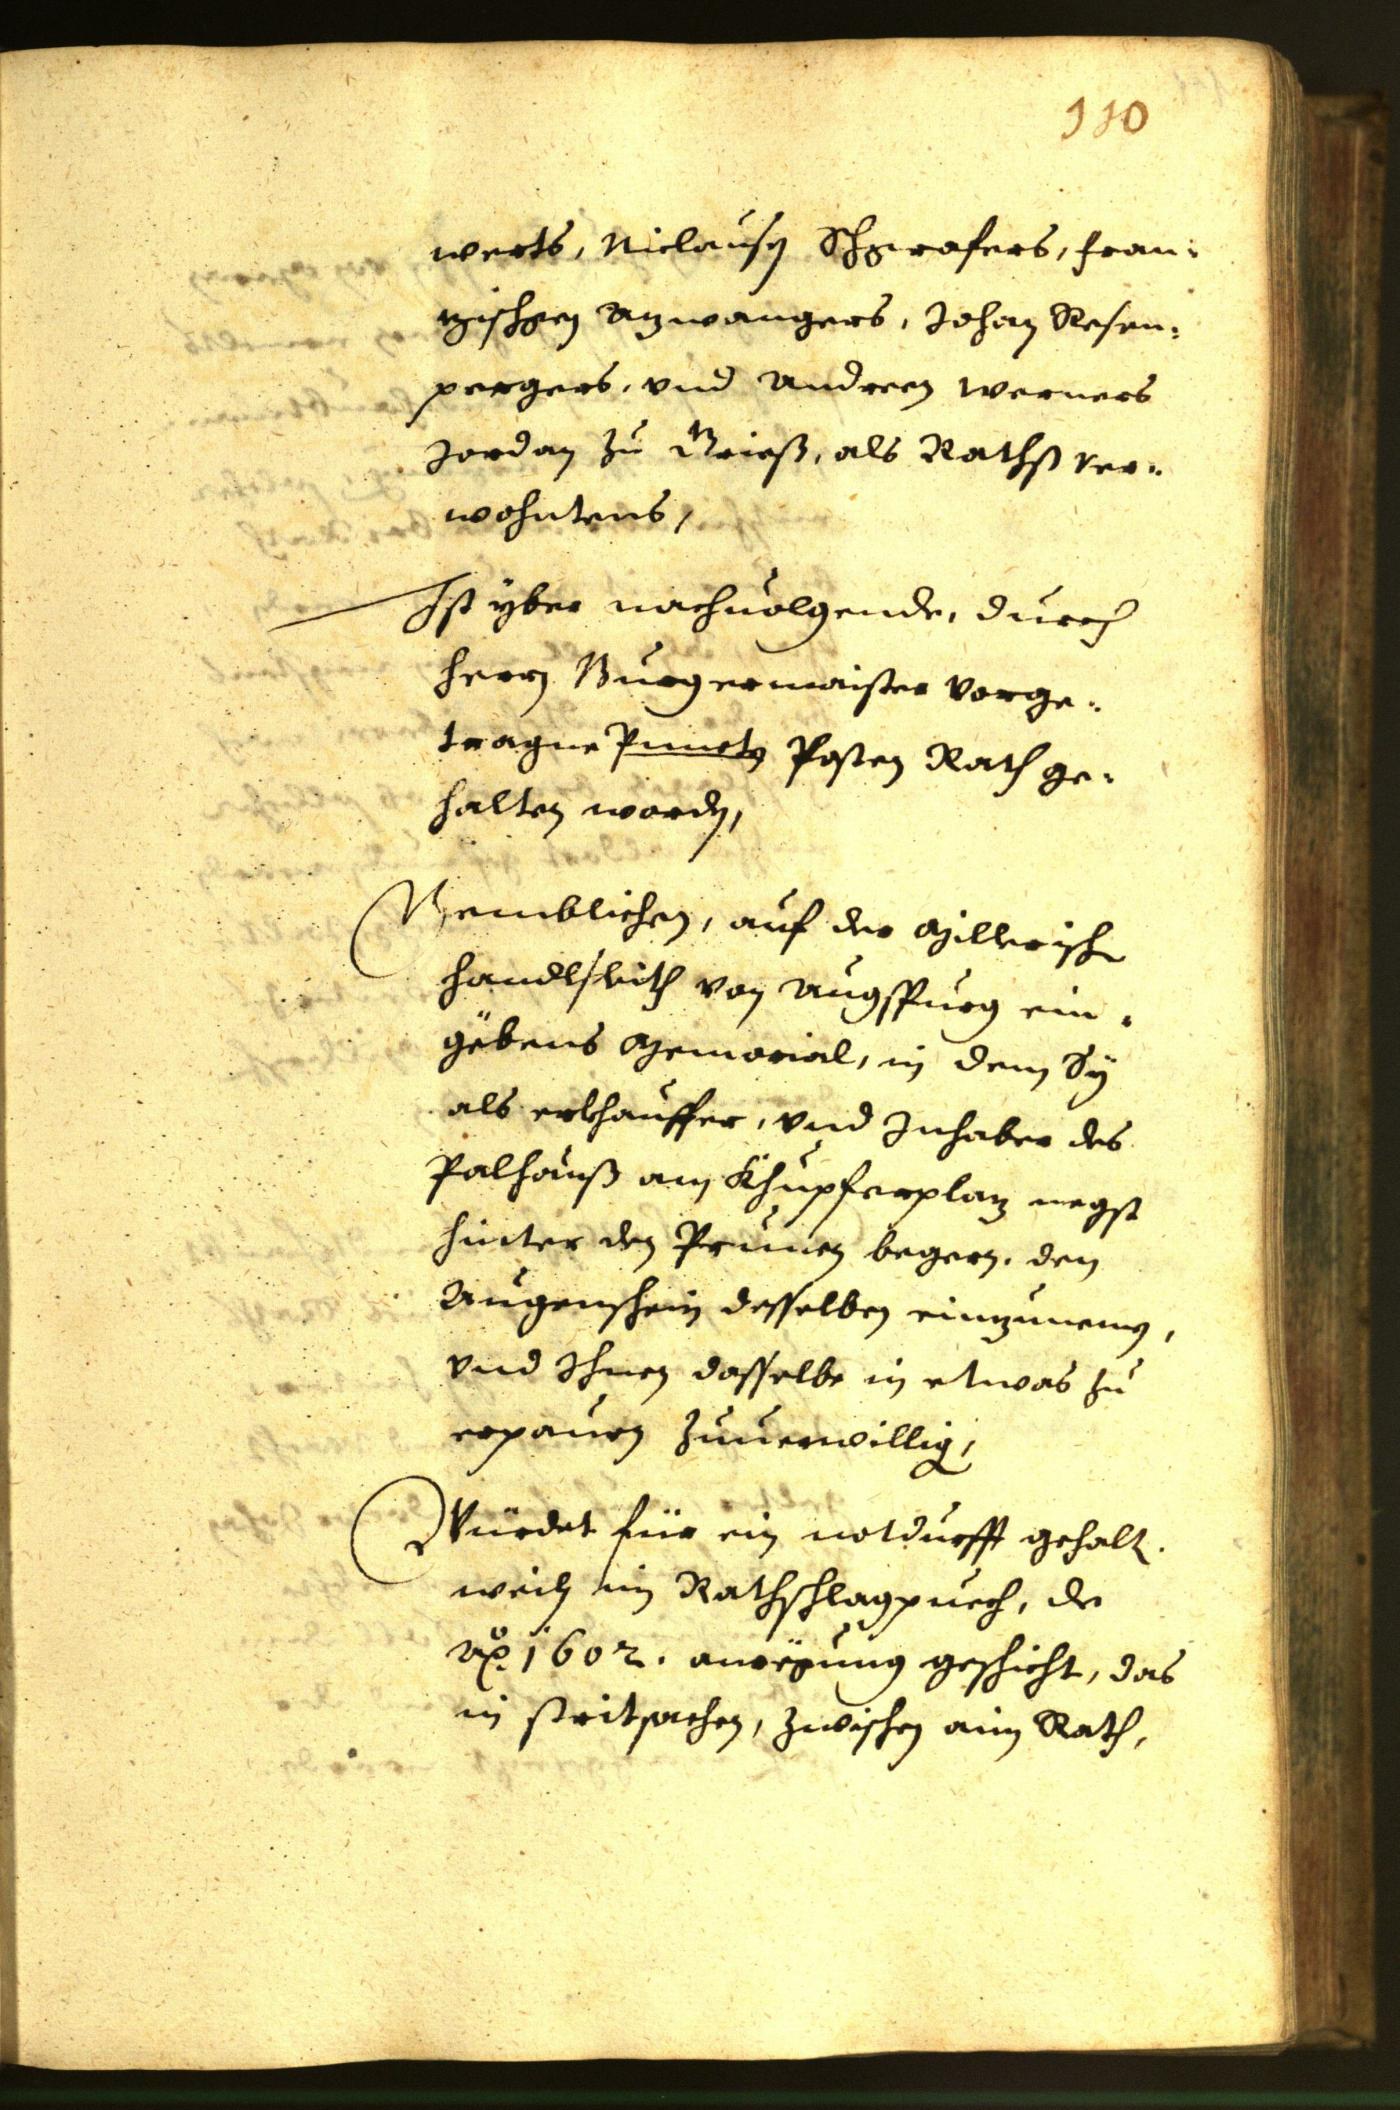 110
werts, Niclausn Schgrafers, Fran¬
zischgen Anwangers, Johan Rosen¬
pergers, vnd Andreen Werners
Jordan zu Grieß, als Rathß ver¬
wohntens,
Ist yber nachuolgende, durch
herrn Burgermaister vorge¬
tragne Puncts Posten Rath ge¬
halten worden,
Nemblichen, auf der Millerisch
handlsleith von Augspurg ein¬
gëbens Memorial, in dem Sÿ
als erkhauffer, vnd Inhaber des
Palhauß am Khupferplaz negst
hinter den Prunen begern, den
Augenschein desselben einzunemen,
vnd Ihnen dasselbe in etwas zu
erpauen zuuerwilligen,
Würdet für ein notdurfft gehalten
weiln im Rathschlagpuech, de
Ao. 1602. anregung geschicht, das
in stritsachen, zwischen aim Rath,